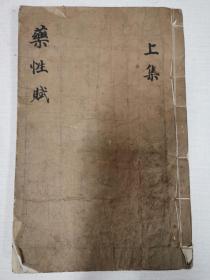 上集
藥性賦